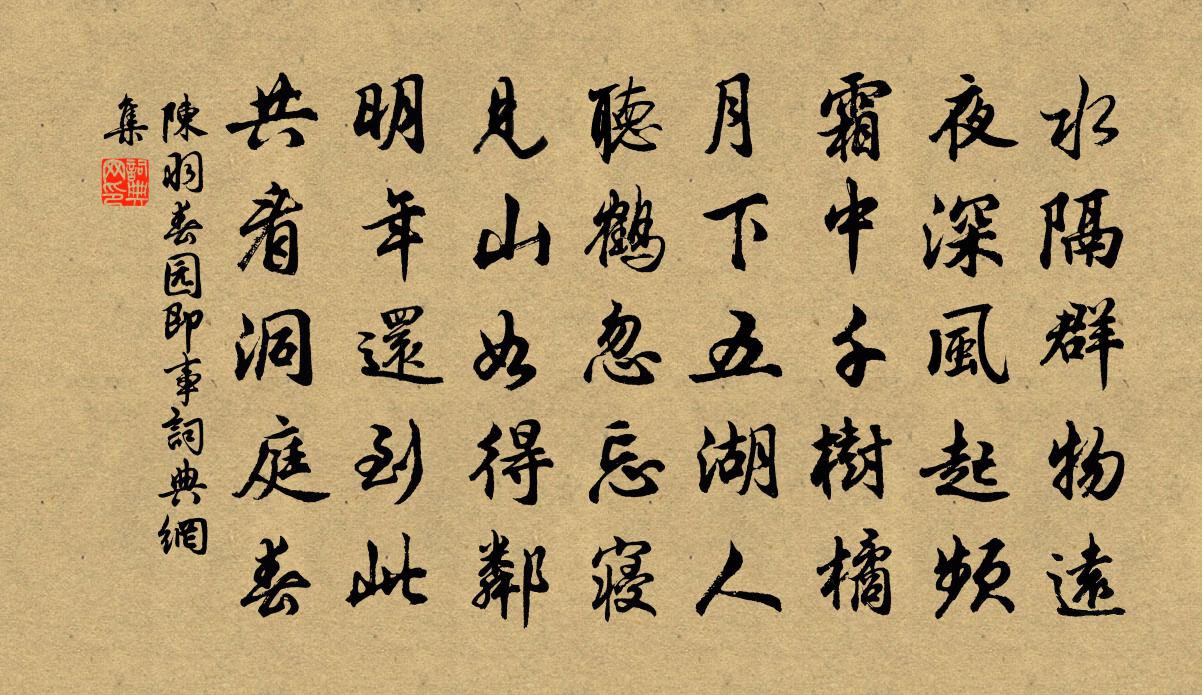 水隔群物遠
夜深風起頻
霜中千樹橘
月下五湖人
聽鶴忽忘寢
見山如得鄰
明年還到此
共看洞庭春
陳羽春园即事詞典網
集
詞典
网印